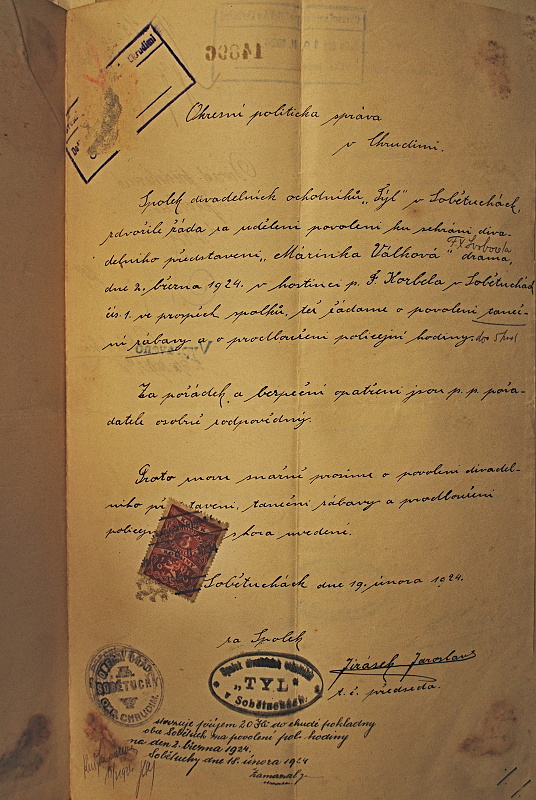 14896
Chrudimi
Okresní politická správa
v Chrudimi.
Spolek divadelních ochotníků „Tyl" v Sobětuchách,
zdvořile žádá za udělení povolení ku sehrání diva-
delního představení „Márinka Válková" drama,
F. X. Svobody
dne 2. března 1924. v hostinci p. F. Korbela v Sobětuchách
čís. 1. ve prospěch spolku, též žádáme o povolení taneč-
ní zábavy a o prodloužení policejní hodiny. do 5 hod
Za pořádek a bezpeční opatření jsou p. p. pořa-
datelé osobně zodpovědný.
Proto snažně prosíme o povolení divadel-
ního taneční zábavy a prodloužení
shora uvedení.
Sobětuchách dne 19. února 1924.
za Spolek
Jirásek Jaroslav
t. č. předseda.
Spolek divadelních ochotníků
„TYL"
v Sobětuchách.
OBECNÍ ÚŘAD
SOBĚTUCHY
CHRUDIM
příjem 20 Kč do chudé pokladny
na povolení pol. hodiny
na den 2. března 1924.
Sobětuchy dne 18. února 1924